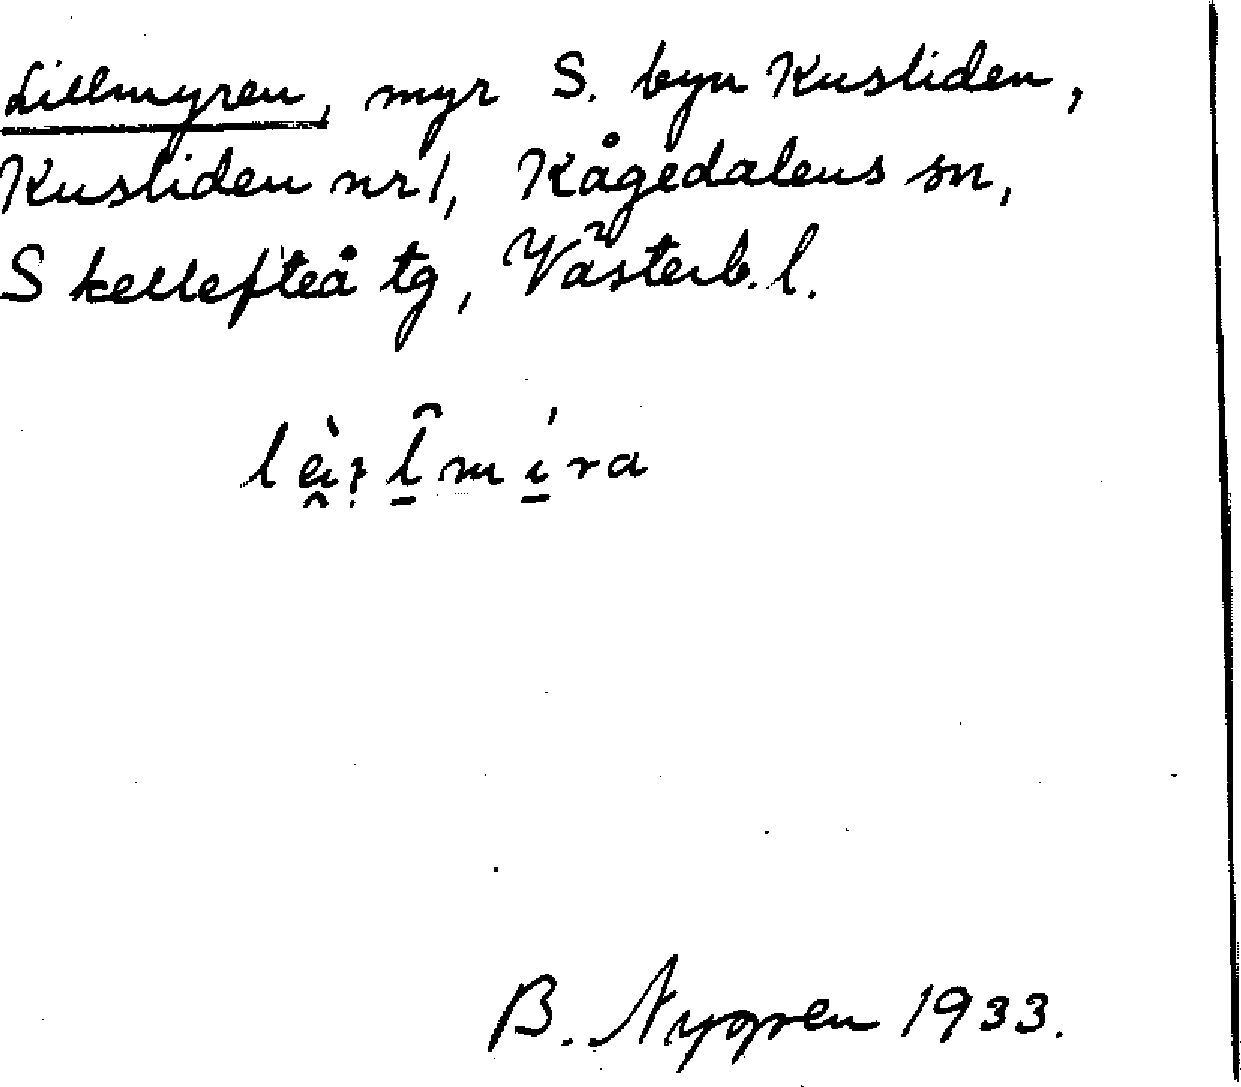 Lillmyren, myr S. byn Kusliden,
Kusliden nr 1, Kågedalens sn,
Skellefteå tg, Västerb. l.
B. Nygren 1933.